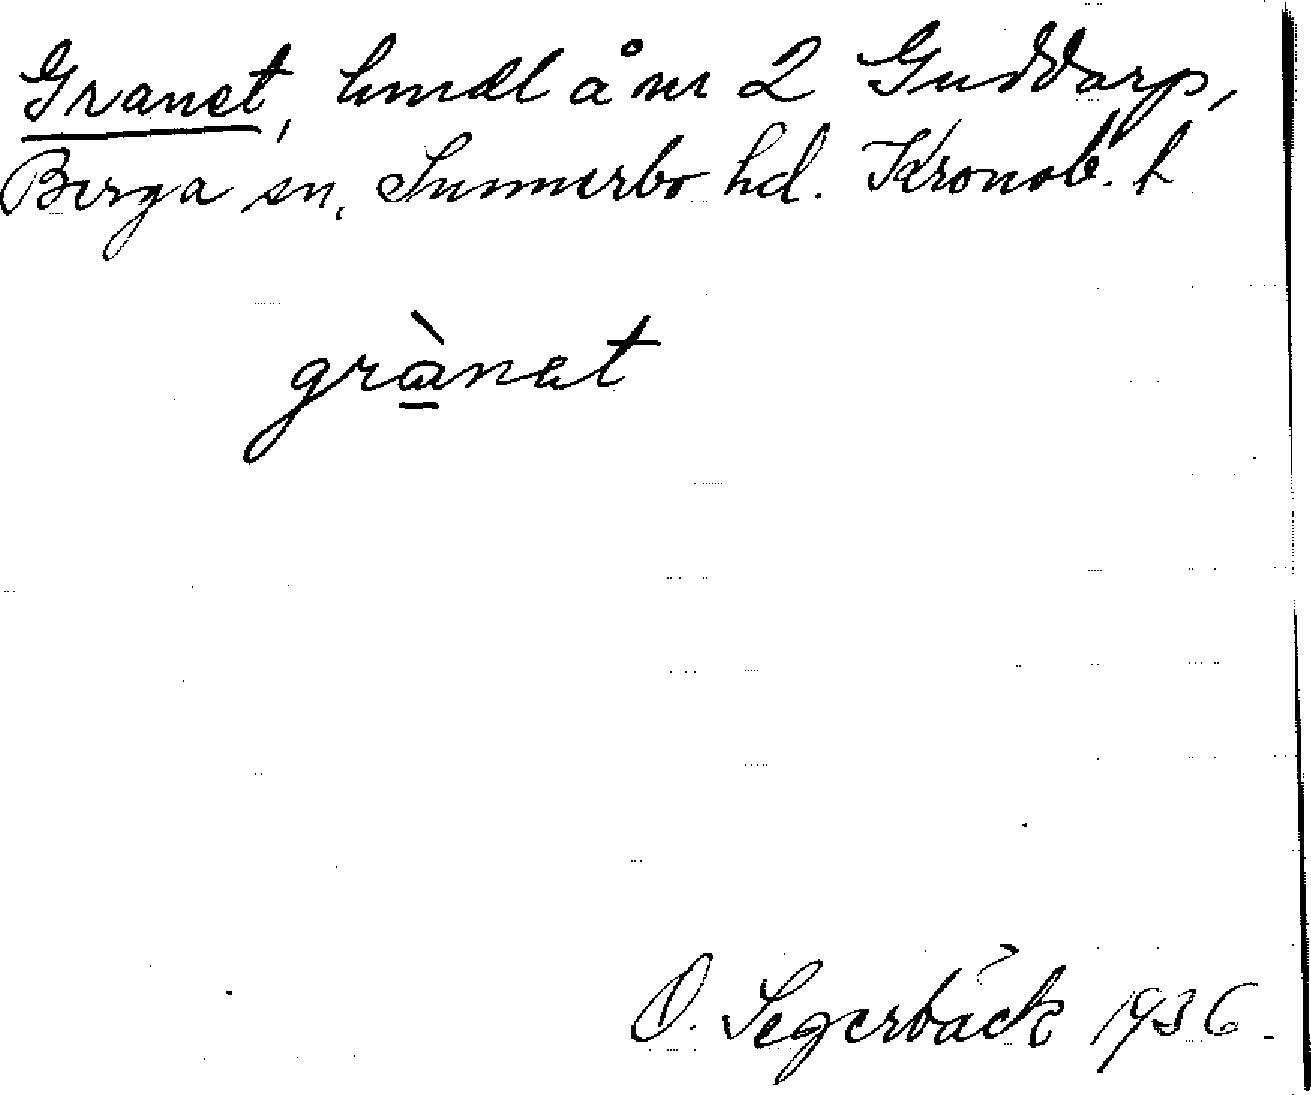 Granet, lmdl å nr 2 Guddarp,
Berga sn, Sunnerbo hd. Kronob. l
grànat
O. Segerbäck 1936